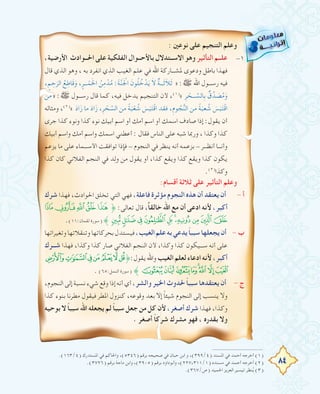 معلومات إثرائية
وعلم التنجيم على نوعين :
١- علم التأثير وهو الاستدلال بالأحـوال الفلكية على الحوادث الأرضية،
فهذا باطل ودعوى مشاركة الله في علم الغيب الذي انفرد به ، وهو الذي قال
فيه رسول الله ﷺ : « ثَلَاثَةٌ لَا يَدْخُلُونَ الْجَنَّةَ: مُدْمِنُ الْخَمْرِ، وَقَاطِعُ الرَّحِمِ،
وَمُصَدِّقٌ بِالسِّحْرِ »(١)، لأن التنجيم يدخل فيه، كما قال رسول ﷺ : « مَنْ
اقْتَبَسَ شُعْبَةً مِنَ النُّجُومِ، فَقَدِ اقْتَبَسَ شُعْبَةً مِنَ السِّحْرِ، زَادَ مَا زَادَ »(٢)، ومثاله
ان يقول : إذا صادف اسمك او اسم امك او اسم ابيك نوء كذا ونوء كذا جرى
كذا وكذا ، وربما شبه على الناس فقال : أعطني اسمك واسم امك واسم ابيك
وانــا انظــر – بزعمه أنه ينظر في النجوم – فإذا توافقت الأسماء على ما يزعم
يكون كذا ويقع كذا ويقع كذا، أو يقول من ولد في النجم الفلاني كان كذا
وكذا(٣).
وعلم التأثير على ثلاثة أقسام:
أ – أن يعتقد أن هذه النجوم مؤثرة فاعلة، فهي التي تخلق الحوادث، فهذا شرك
أكبر، لأنه ادعى أن مع الله خالقاً، قال تعالى: ﴿ هَٰذَا خَلْقُ اللَّهِ فَأَرُونِي مَاذَا
خَلَقَ الَّذِينَ مِن دُونِهِ بَلِ الظَّالِمُونَ فِي ضَلَالٍ مُّبِينٍ ﴾ [سورة لقمان:١١].
ب – أن يجعلها سبباً يدعي به علم الغيب، فيستدل بحركاتها وتنقلاتها وتغيراتها
على أنه سيكون كذا وكذا، لان النجم الفلاني صار كذا وكذا، فهذا شــرك
أكبر، لأنه ادعاء لعلم الغيب والله يقول: ﴿ قُل لَّا يَعْلَمُ مَن فِي السَّمَاوَاتِ وَالْأَرْضِ
الْغَيْبَ إِلَّا اللَّهُ وَمَا يَشْعُرُونَ أَيَّانَ يُبْعَثُونَ ﴾ [سورة النمل:٦٥].
ج – أن يعتقدها سبباً لحدوث الخير والشر، أي أنه إذا وقع شيء نسبة إلى النجوم،
ولا ينتسب إلى النجوم شيئاً إلا بعد وقوعه، كنزول المطر فيقول مطرنا بنوء كذا
وكذا، فهذا شرك أصغر، لأن كل من جعل سبباً لم يجعله الله سبباً لا بوحيه
ولا بقدره ، فهو مشرك شركاً أصغر .
(٣) يُنظر تيسير العزيز الحميد
٨٤